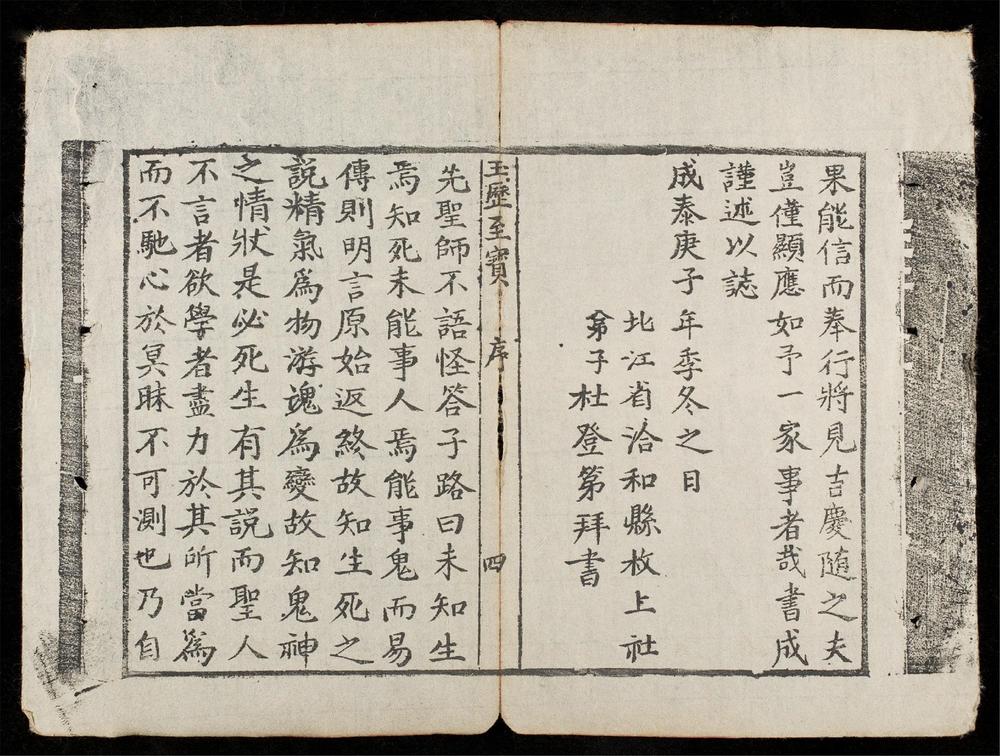 果能信而奉行將見吉慶随之夫
豈僅顯應如予一家事者哉書成
謹述以誌
成泰庚子年季冬之日
北江省洽和縣枚上社
弟子杜登第拜書
玉歷至寶 序 四
先聖師不語怪答子路曰未知生
焉知死未能事人焉能事鬼而易
傳則明言原始返終故知生死之
説精氣為物游魂為變故知鬼神
之情狀是必死生有其説而聖人
不言者欲學者盡力於其所當為
而不馳心於冥昧不可測也乃自